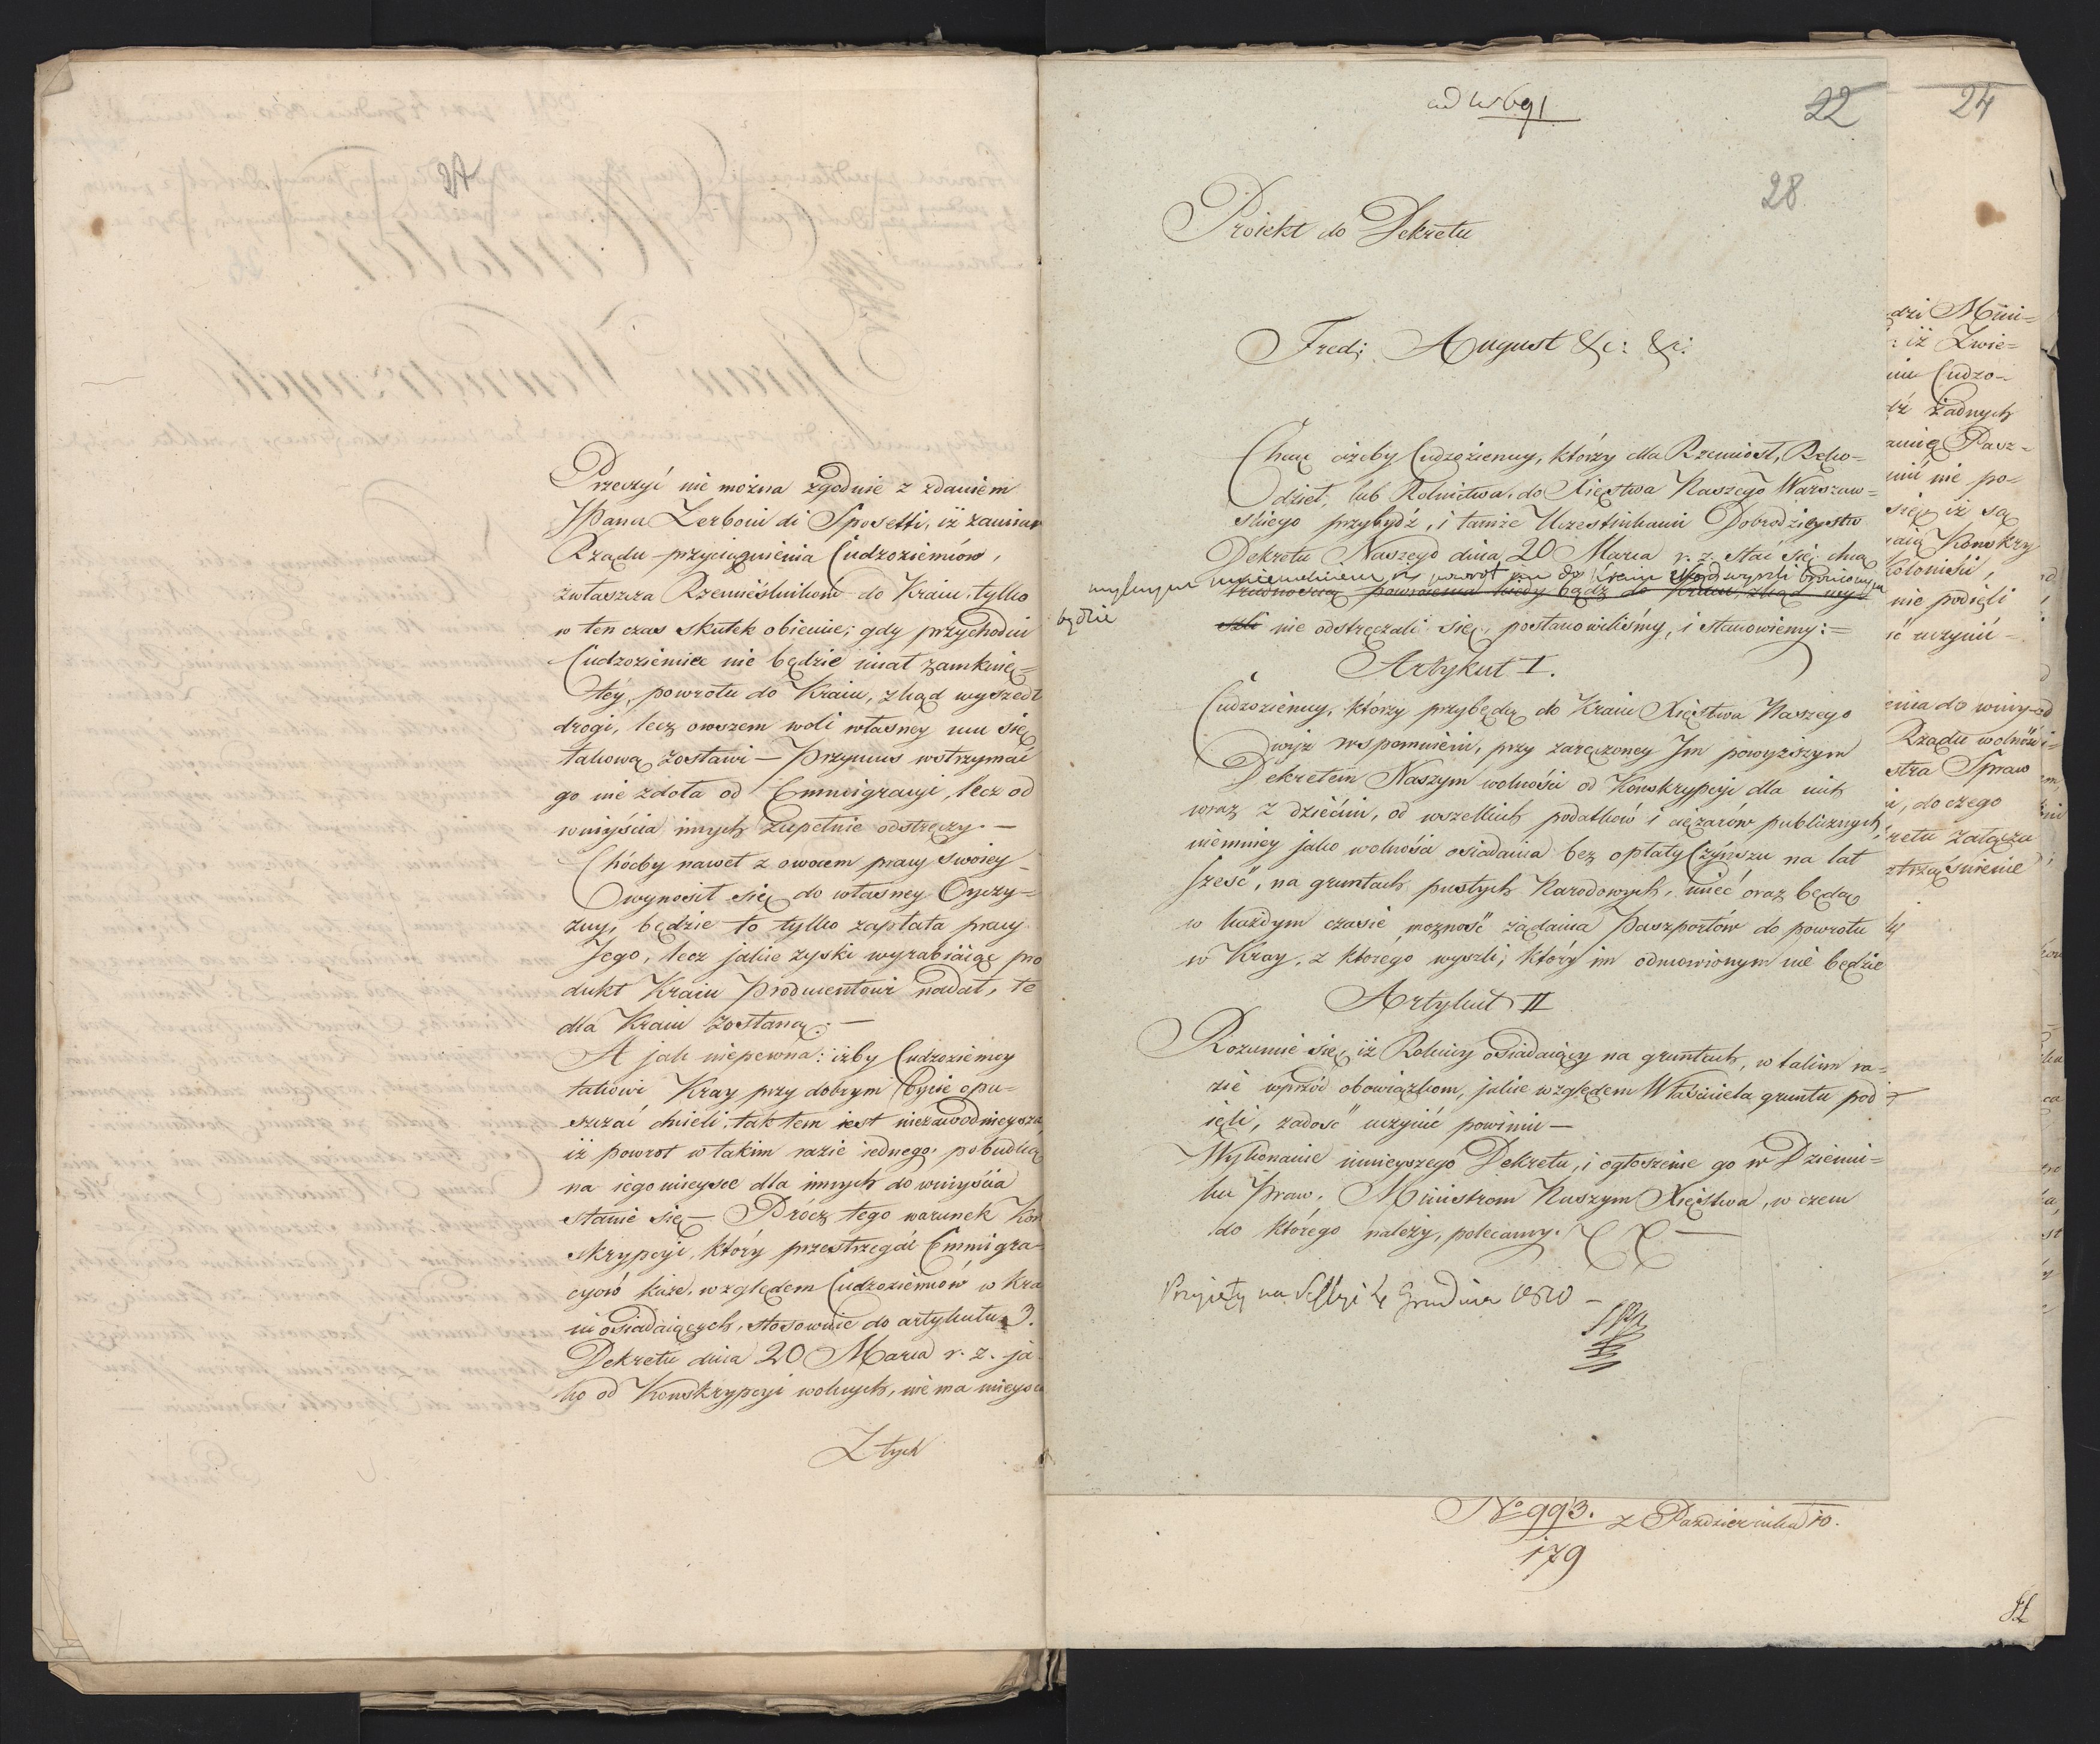 27
Przeczyć nie można zgodnie z zdaniem
JPana Zerboni di Sposetti, iż zamiar
Rządu przyciągnienia Cudzoziemców,
zwłaszcza Rzemieślników do Kraiu, tylko
w ten czas skutek obiecuie; gdy przychodni
Cudzoziemiec nie będzie miał zamknię=
tey, powrotu do Kraiu, zkąd wyszedł
drogi, lecz owszem woli własney mu się
takową zostawi — Przymus wstrzymać
go nie zdoła od Emmigracyi, lecz od
wniyścia innych zupełnie odstręczy. —
Chóćby nawet z owocem pracy swoiey
wynosił się do własney Oyczy=
zny, będzie to tylko zapłata pracy
Jego, lecz jakie zyski wyrabiaiąc pro
dukt Kraiu Producentowi nadał, te
dla Kraiu zostaną. —
A jak niepewna: iżby Cudzoziemcy
takowi Kray przy dobrym Bycie opu=
szczać chcieli; tak tem iest niezawodnieysza,
iż powrot w takim razie iednego, pobudką
na iego mieysce dla innych do wniyścia
stanie się — Prócz tego warunek Kon
skrypcyi, który przestrzegać Emmigra=
cyów każe, względem Cudzoziemców w Kra
iu osiadaiących, stosownie do artykułu 3.
Dekretu dnia 20 Marca r. z. ja
ko od Konskrypcyi wolnych, nie ma mieysca
Z tych
ad No 691
22
28
Proiekt do Dekretu
Fred: August &c: &c:
Chcąc ażeby Cudzoziemcy, którzy dla Rzemiosł, Ręko=
dzieł, lub Rolnictwa, do Xięstwa Naszego Warszaw=
skiego przybydź, i tamże Uczestnikami Dobrodzieystw
Dekretu Naszego dnia 20 Marca r. z. stać się chcą
mylnym mniemaniem iż powrot im do Kraiu zkąd wyszli bronionym
będzie
trudnością powrócenia kiedy bądź do Kraiu, zkąd wy=
szli nie odstręczali się, postanowiliśmy, i stanowiemy: =
Artykuł I.
Cudzoziemcy, którzy przybędą do Kraiu Xięstwa Naszego
wyż wspomnieni, przy zaręczoney Jm powyższym
Dekretem Naszym wolności od Konskrypcyi dla nich
wraz z dziećmi, od wszelkich podatków i ciężarów publicznych,
niemniey jako wolności osiadania bez opłaty Czynszu na lat
sześć, na gruntach pustych Narodowych, mieć oraz będą
w każdym czasie możność żądania Paszportów do powrotu
w Kray, z którego wyszli, który im odmowionym nie będzie
Artykuł II
Rozumie się, iż Rolnicy osiadaiący na gruntach, w takim ra=
zie wprzód obowiązkom, jakie względem Właściciela gruntu pod=
ięli, zadość uczynić powinni —
Wykonanie ninieyszego Dekretu, i ogłoszenie go w Dzienni=
ku Praw, Ministrom Naszym Xięstwa, w czem
do którego należy, polecamy.
Przyięty na Sessyi 4 Grudnia 1810 —
No 993. z Października 10.
179
24
dzi Mini=
: iż Zwie=
Cudzo=
dź żadnych
Pasz=
nić nie po=
się iż są
aią Konskry
Koloniści,
nie podięli
ść uczynić —
enia do wniy
Rządu wolność
stra Spraw
i, do czego
kretu załącza
strząśnienie